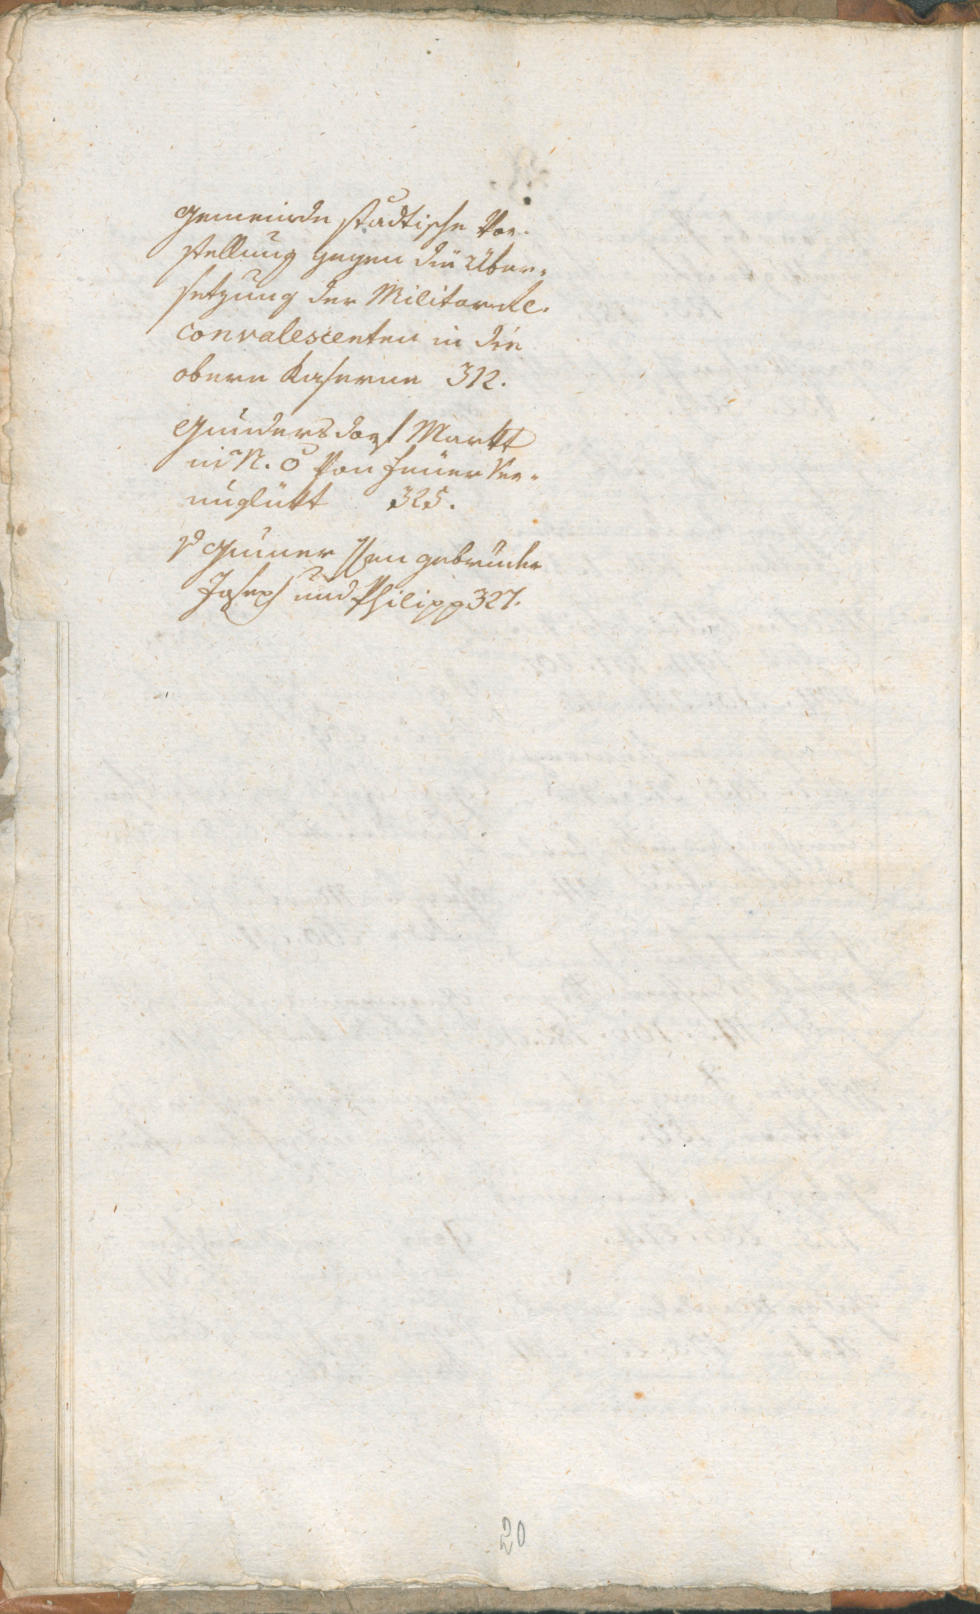 Gemeinde städtische Vor-
stellung gegen die Über-
setzung der Militär Re-
convalescenten in die
obere Kaserne 312.
Gundersdorf Markt
in N. Ö von Feuer Ver-
unglükt 325.
Gruner Gebrüder
Joseph und Philipp 327.
20